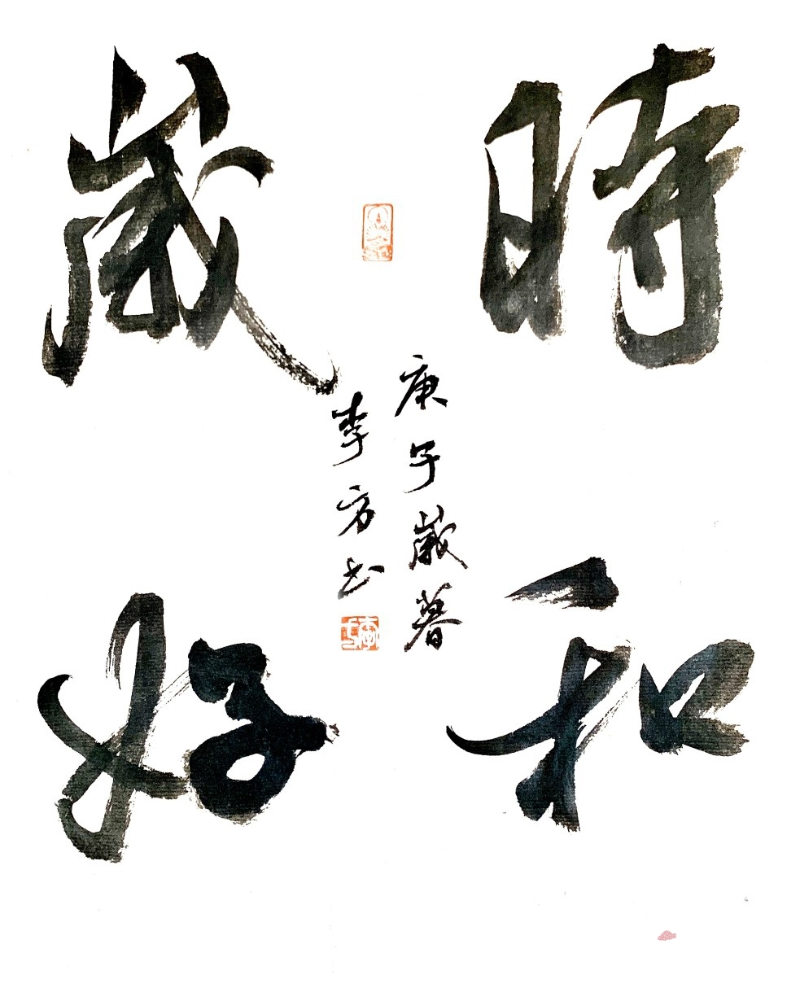 時和
歲好
庚子歲暮
李方书